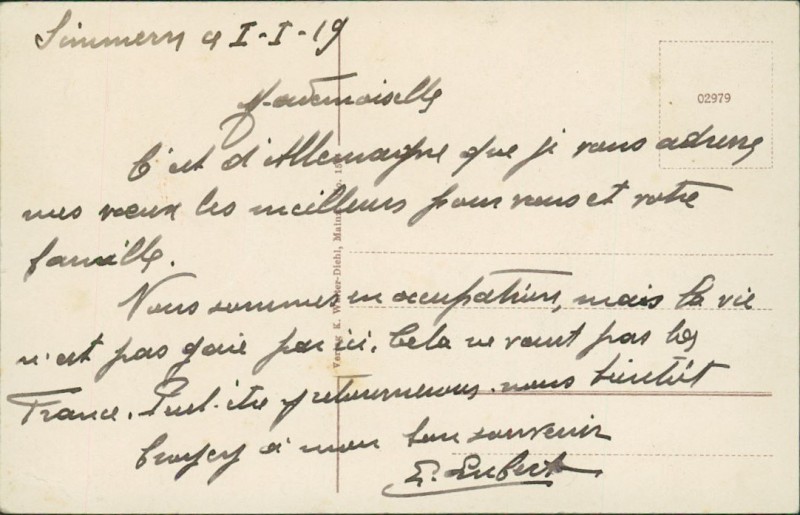 Simmern le I-I-19
02979
Mademoiselle
C'est d'Allemagne que je vous adresse
mes vœux les meilleurs pour vous et votre
famille.
Nous sommes en occupation, mais la vie
n'est pas gaie par ici. Cela ne vaut pas la
France. Peut-être y retournerons-nous bientôt
Croyez à mon bon souvenir
Verlag K. Walter-Diehl, Mainz